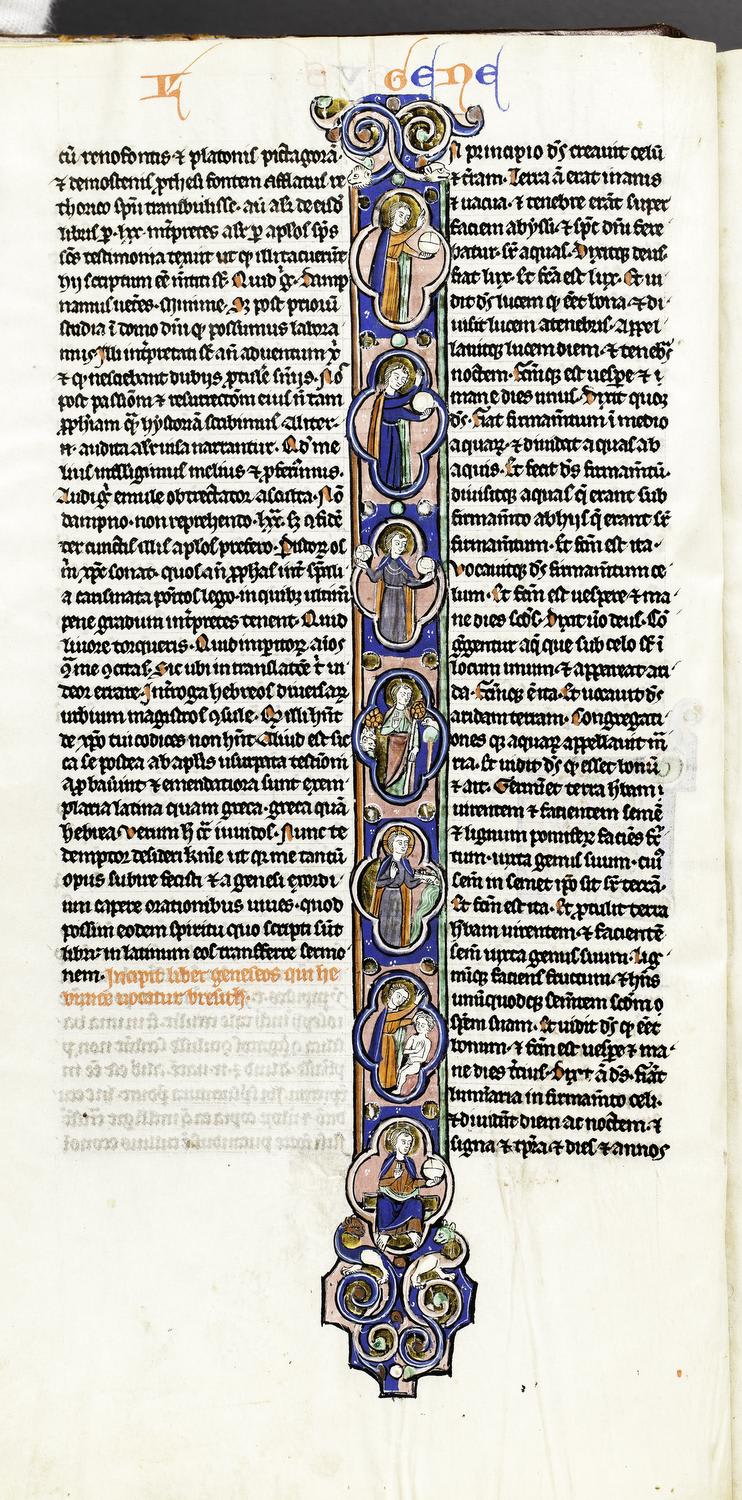 L GENE
cū xenofontis ⁊ platonis pictagorā
⁊ demostenis ꝓthesi fontem afflatus re
thorico spū transtulisse. aū alr̄ de eisdē
libris p. lxx. īterpretes alr̄ p apl̄os sp̄s
scs testimonia texuit ut qͥ illi tacuerūt
hii scriptum eē mentiti st̄. Quid ḡ. Damp
namus ueteres. Minime. Sꝫ post priorū
studia ī domo dn̄i qͥ possumus labora
mus. Illi īterpretati st̄ an̄ aduentum xp̄i
⁊ qͥ nesciebant dubiis ꝓtulere sn̄iis. Nos
post passiōm ⁊ resurrectōem eius n̄ tam
ꝓphiam quā hystoriā scribimus. Aliter
n̄. audita alr̄ uisa narrantur. Qd̄ me
lius intelligimus melius ⁊ ꝓferimus.
Audi ḡ emule obtrectator asculta. Nō
dampno. non reprehendo. lxx. sꝫ ɔfidē
ter cunctis illis apl̄os prefero. Per istoꝝ os
m̄ xp̄c sonat. quos an̄ ꝓphas int̄ sp̄ūa
lia carismata positos lego. in quibꝫ ultimū
pene gradum īterpretes tenent. Quid
liuore torqueris. Quid imperitoꝝ aīos
ɔ me ɔcitas. Sicubi in translatiōe t̄ ui
deor errare. Interroga hebreos diuersaꝝ
urbium magistros ɔsule. Qd̄ illi hn̄t
de xp̄o tui codices non hn̄t. Aliud est sic
ɔͣ se postea ab apl̄is usurpata testiōm
a ꝓbauerit ⁊ emendatiora sunt exem
plaria latina quam greca. greca quā
hebrea. Verum h̄ ɔͣ inuidos. Nunc te
deprecor desideri krm̄e ut qͥ me tantū
opus subire fecisti ⁊ a genesi exordi
um capere orationibus iuues. quod
possim eodem spiritu quo scripti sūt
libri in latinum eos transferre sermo
nem. Incipit liber geneseos qui he
braice uocatur bresith.
IN principio dꝰs creauit celū
⁊ t̄ram. Terra aū erat inanis
⁊ uacua. ⁊ tenebre erāt super
faciem abyssi. ⁊ sp̄c dn̄i fere
batur. sr̄ aquas. Dixitqꝫ deus.
fiat lux. Et fc̄a est lux. Et ui
dit dꝰs lucem qͥ eēt bona. ⁊ di
uisit lucem a tenebris. Appel
lauitqꝫ lucem diem. ⁊ tenebrͣs
noctem. Factumqꝫ est uespe ⁊
mane dies unus. Dixit quoqꝫ
dꝰs. Fiat firmamntum ī medio
aquaꝝ. ⁊ diuidat aquas ab
aquis. Et fecit dꝰs firmamtū.
diuisitqꝫ aquas q̄ erant sub
firmamto ab hiis q̄ erant sr̄
firmamtum. Et fcm̄ est ita.
Vocauitqꝫ dꝰs firmamtum ce
lum. Et fcm̄ est uespere ⁊ ma
ne dies scd̄s. Dixit uō deus. Cō
gregentur aq̄ que sub celo st̄ ī
locum unum. ⁊ appareat ari
da. Factumqꝫ ē ita. Et uocauit dꝰs
aridam terram. Congregati
ones qꝫ aquaꝝ appellauit ma
ria. Et uidit dꝰs qͥ esset bonū
⁊ ait. Germinet terra hbam
uirentem ⁊ facientem semē
⁊ lignum pomiferꝝ faciēs fruc
tum. iuxta genus suum. cuiꝰ
sem̄ in semet ipso sit sr̄ terrā.
Et fcm̄ est ita. Et ꝓtulit terra
hbam uirentem. ⁊ facientē
sem̄ iuxta genus suum. lig
numqꝫ faciens fructum. ⁊ hn̄s
unūquodqꝫ sem̄tem scd̄m
spēm suam. Et uidit dꝰs qͥ eēt
bonum. ⁊ fcm̄ est uespe ⁊ ma
ne dies t̄cius. Dixit aū dꝰs. Fiāt
luminaria in firmamto celi.
⁊ diuidāt diem ac noctem. ⁊
signa ⁊ tp̄ra ⁊ dies ⁊ annos